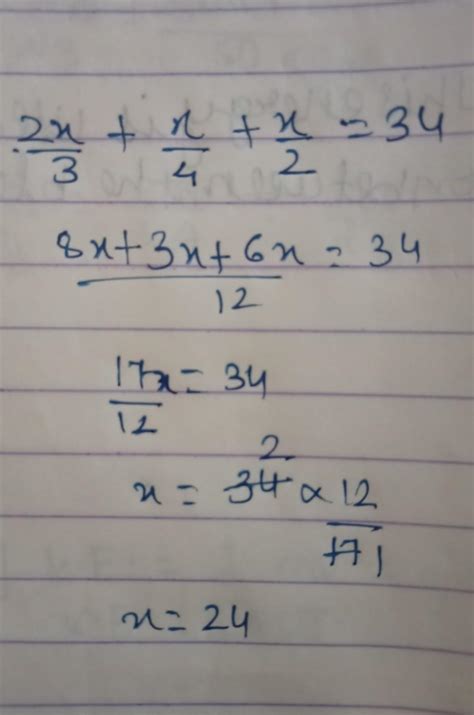 2x/3 + x/4 + x/2 = 34
8x+3x+6x/12 = 34
17x/12 = 34
x = 34 2 × 12/17 1
x = 24